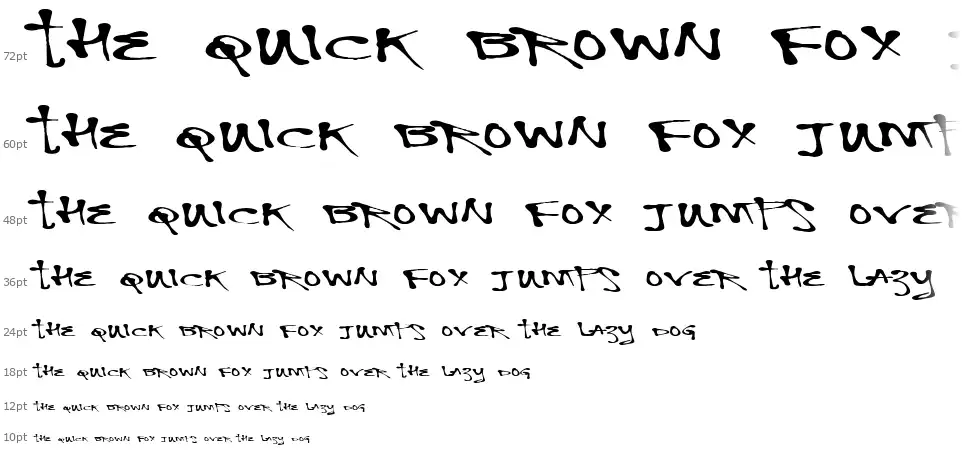 72pt THE QUICK BROWN FOX
60pt THE QUICK BROWN FOX JUMP
48pt THE QUICK BROWN FOX JUMPS OVER
36pt THE QUICK BROWN FOX JUMPS OVER THE LAZY
24pt THE QUICK BROWN FOX JUMPS OVER THE LAZY DOG
18pt THE QUICK BROWN FOX JUMPS OVER THE LAZY DOG
12pt THE QUICK BROWN FOX JUMPS OVER THE LAZY DOG
10pt THE QUICK BROWN FOX JUMPS OVER THE LAZY DOG